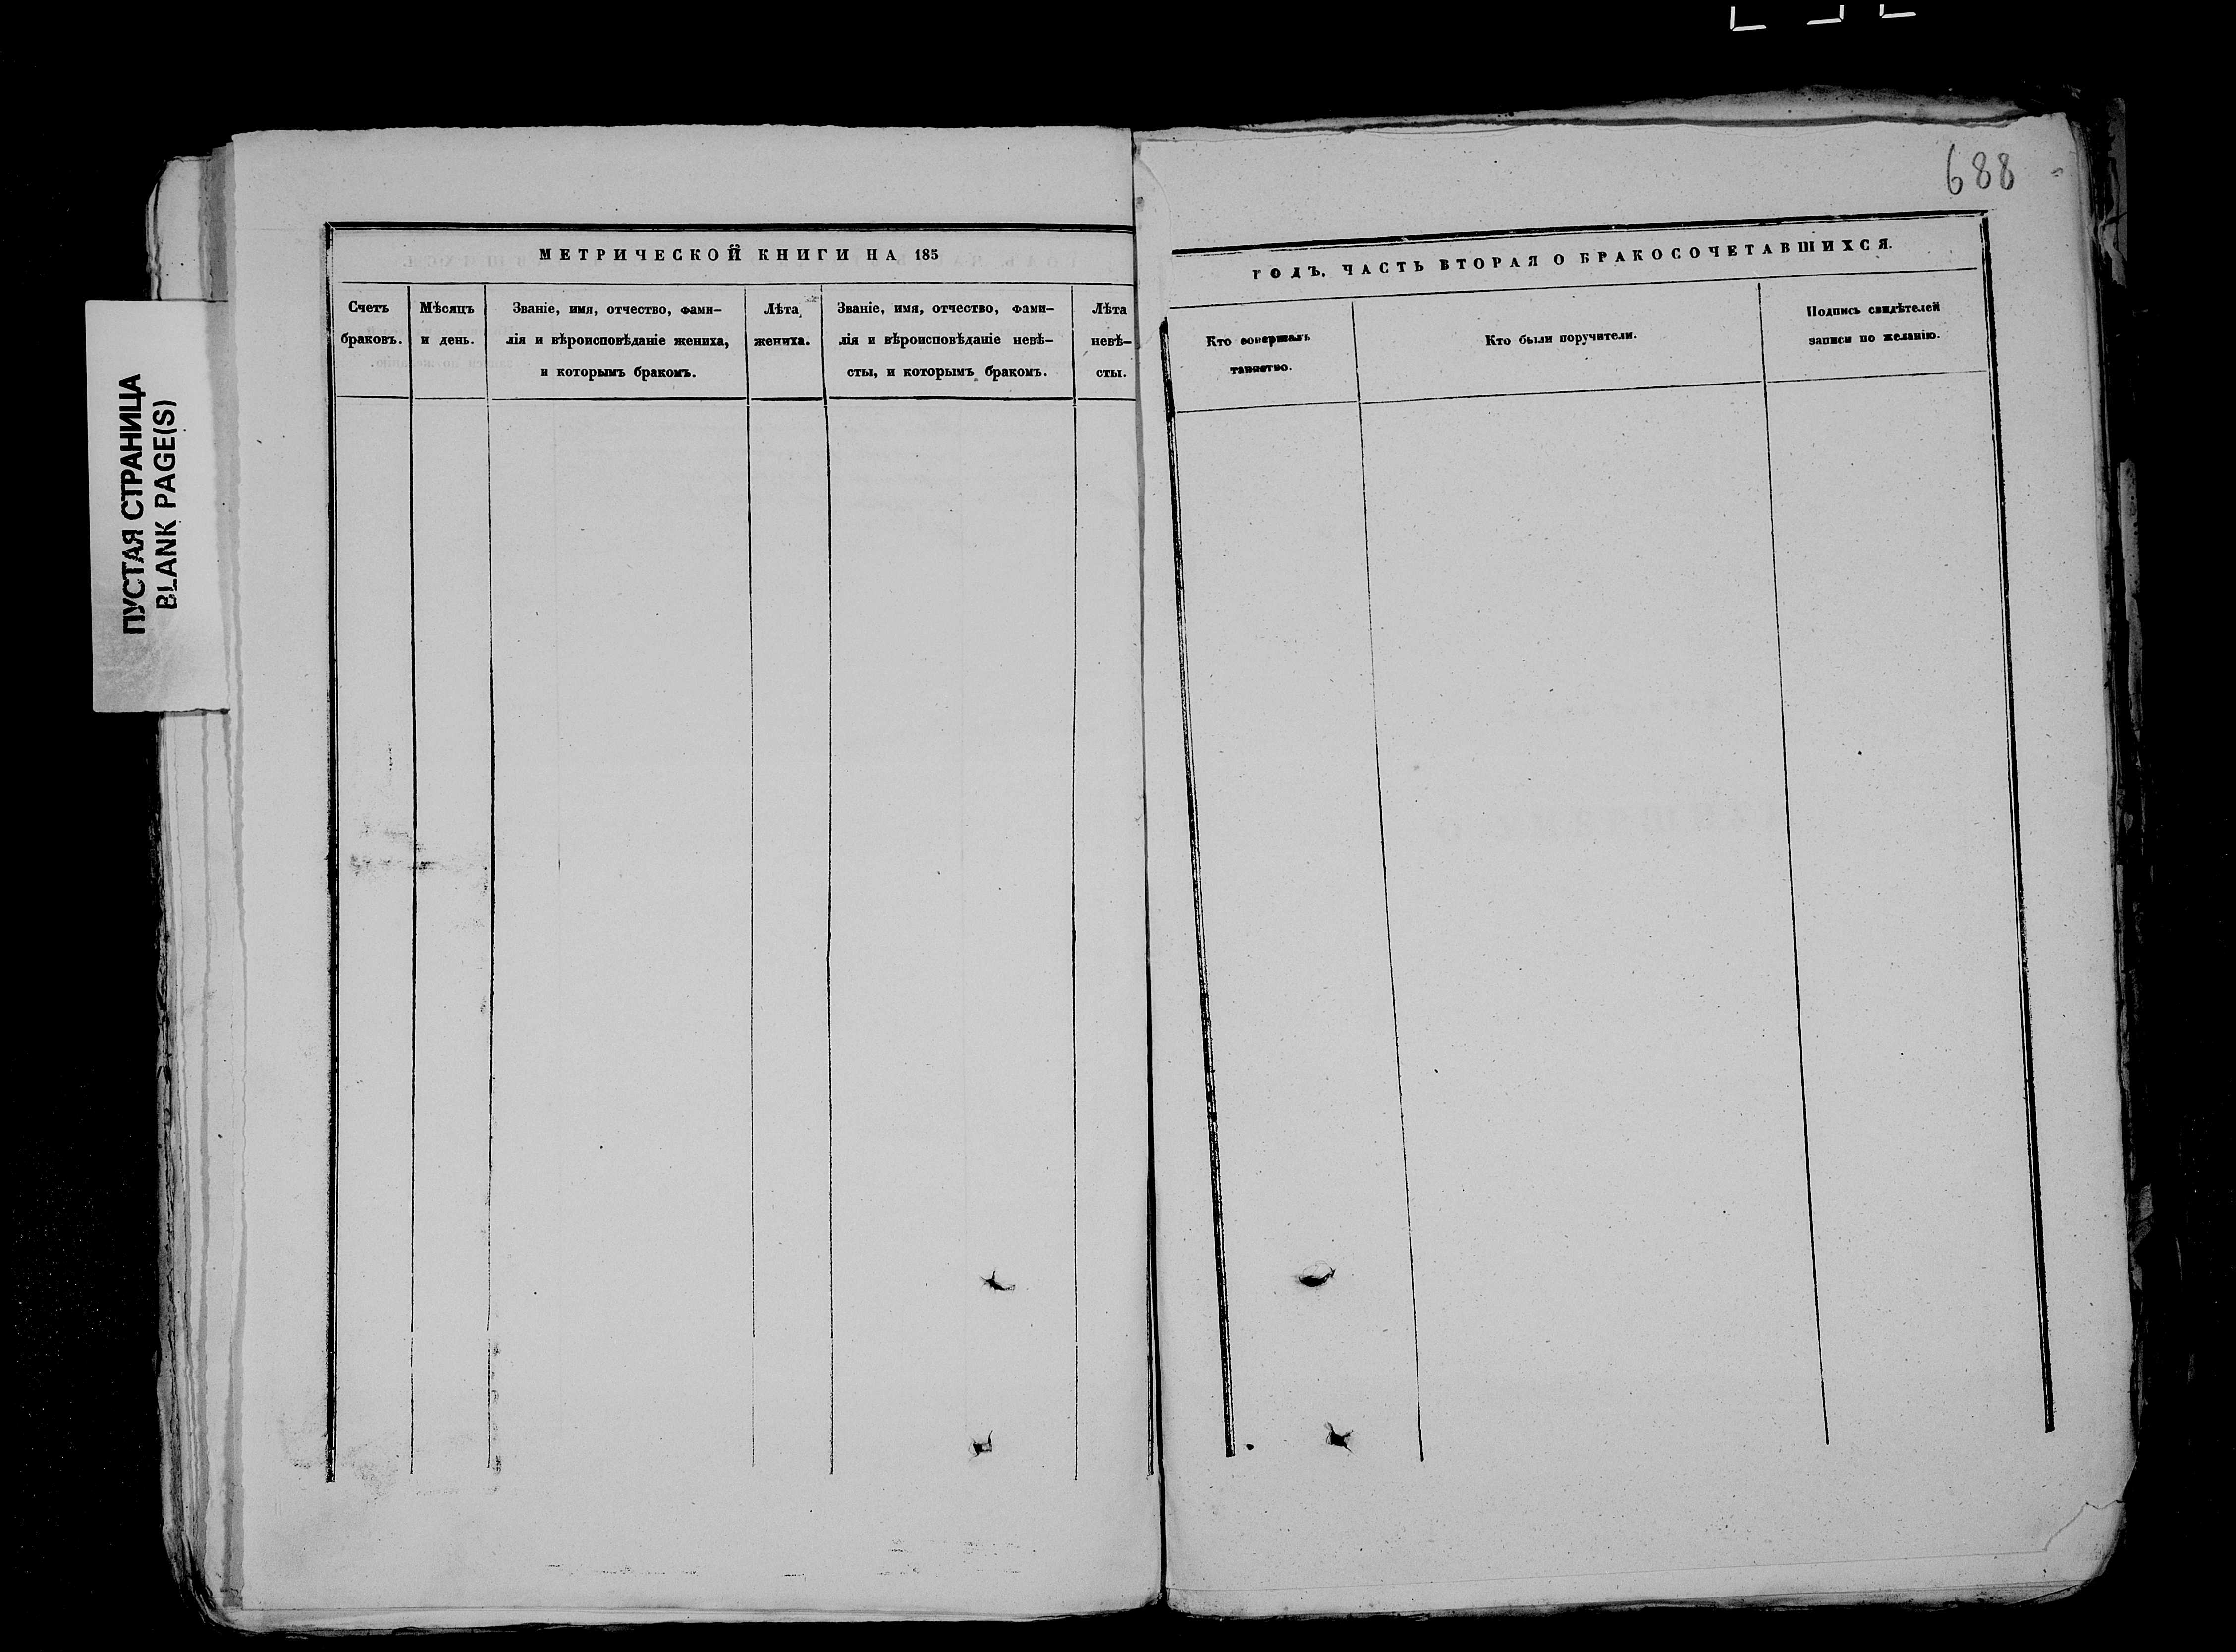 688
ПУСТАЯ СТРАНИЦА
BLANK PAGE(S)
МЕТРИЧЕСКОЙ КНИГИ НА 185
Счетъ
браковъ.
Мѣсяцъ
и день.
Званіе, имя, отчество, фами-
лія и вѣроисповѣданіе жениха,
и которымъ бракомъ.
Лѣта
жениха.
Званіе, имя, отчество, фами-
лія и вѣроисповѣданіе невѣ-
сты, и которымъ бракомъ.
Лѣта
невѣ-
сты.
ГОДЪ, ЧАСТЬ ВТОРАЯ О БРАКОСОЧЕТАВШИХСЯ.
Кто совершалъ
таинство.
Кто были поручители.
Подпись свидѣтелей
записи по желанію.